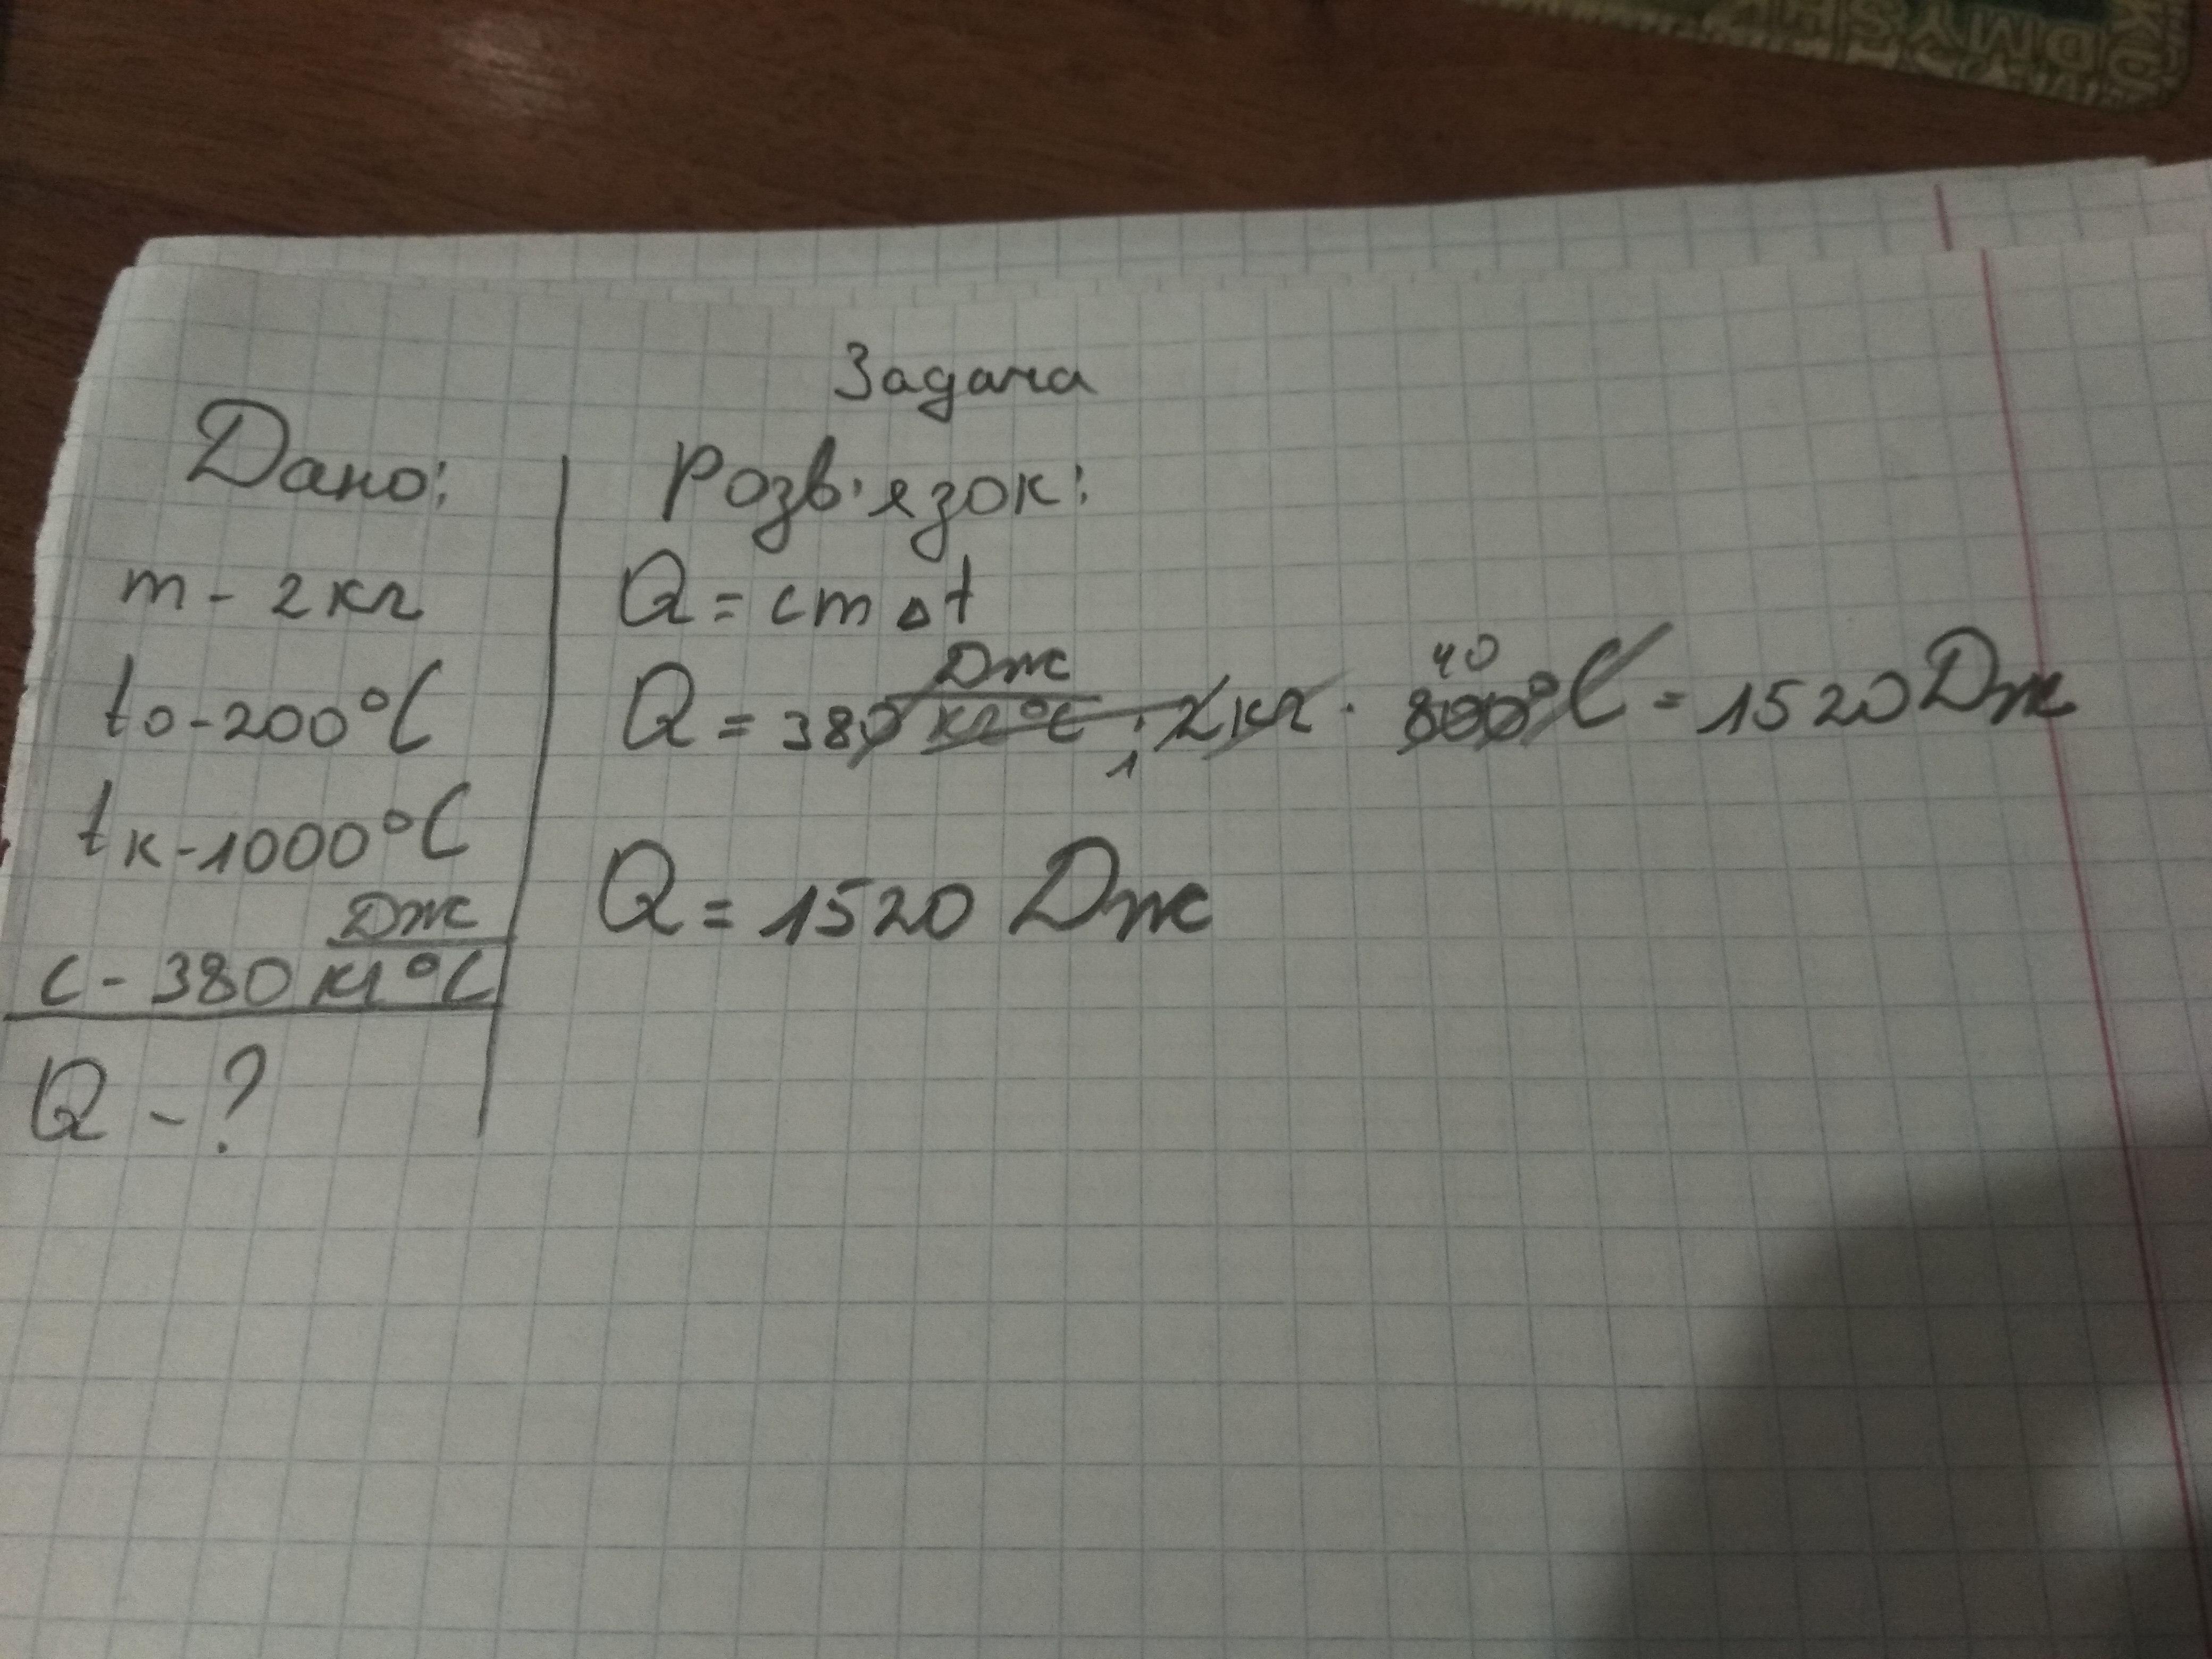 Задача
Дано:
m - 2 кг
to - 200°C
tк - 1000°C
c - 380 Дж/кг°C
Q - ?
Розв'язок:
Q = cm△t
Q = 380 Дж/кг°C · 2 кг · 800°C = 1520 Дж
1
40
Q = 1520 Дж